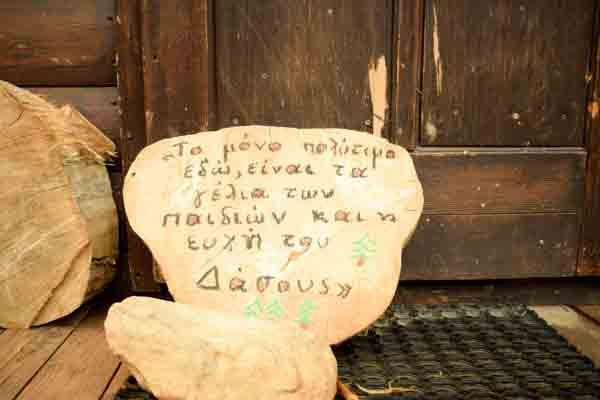 „Το μόνο πολύτιμο
εδώ, είναι τα
γέλια των
παιδιών και η
ευχή του
Δάσους»